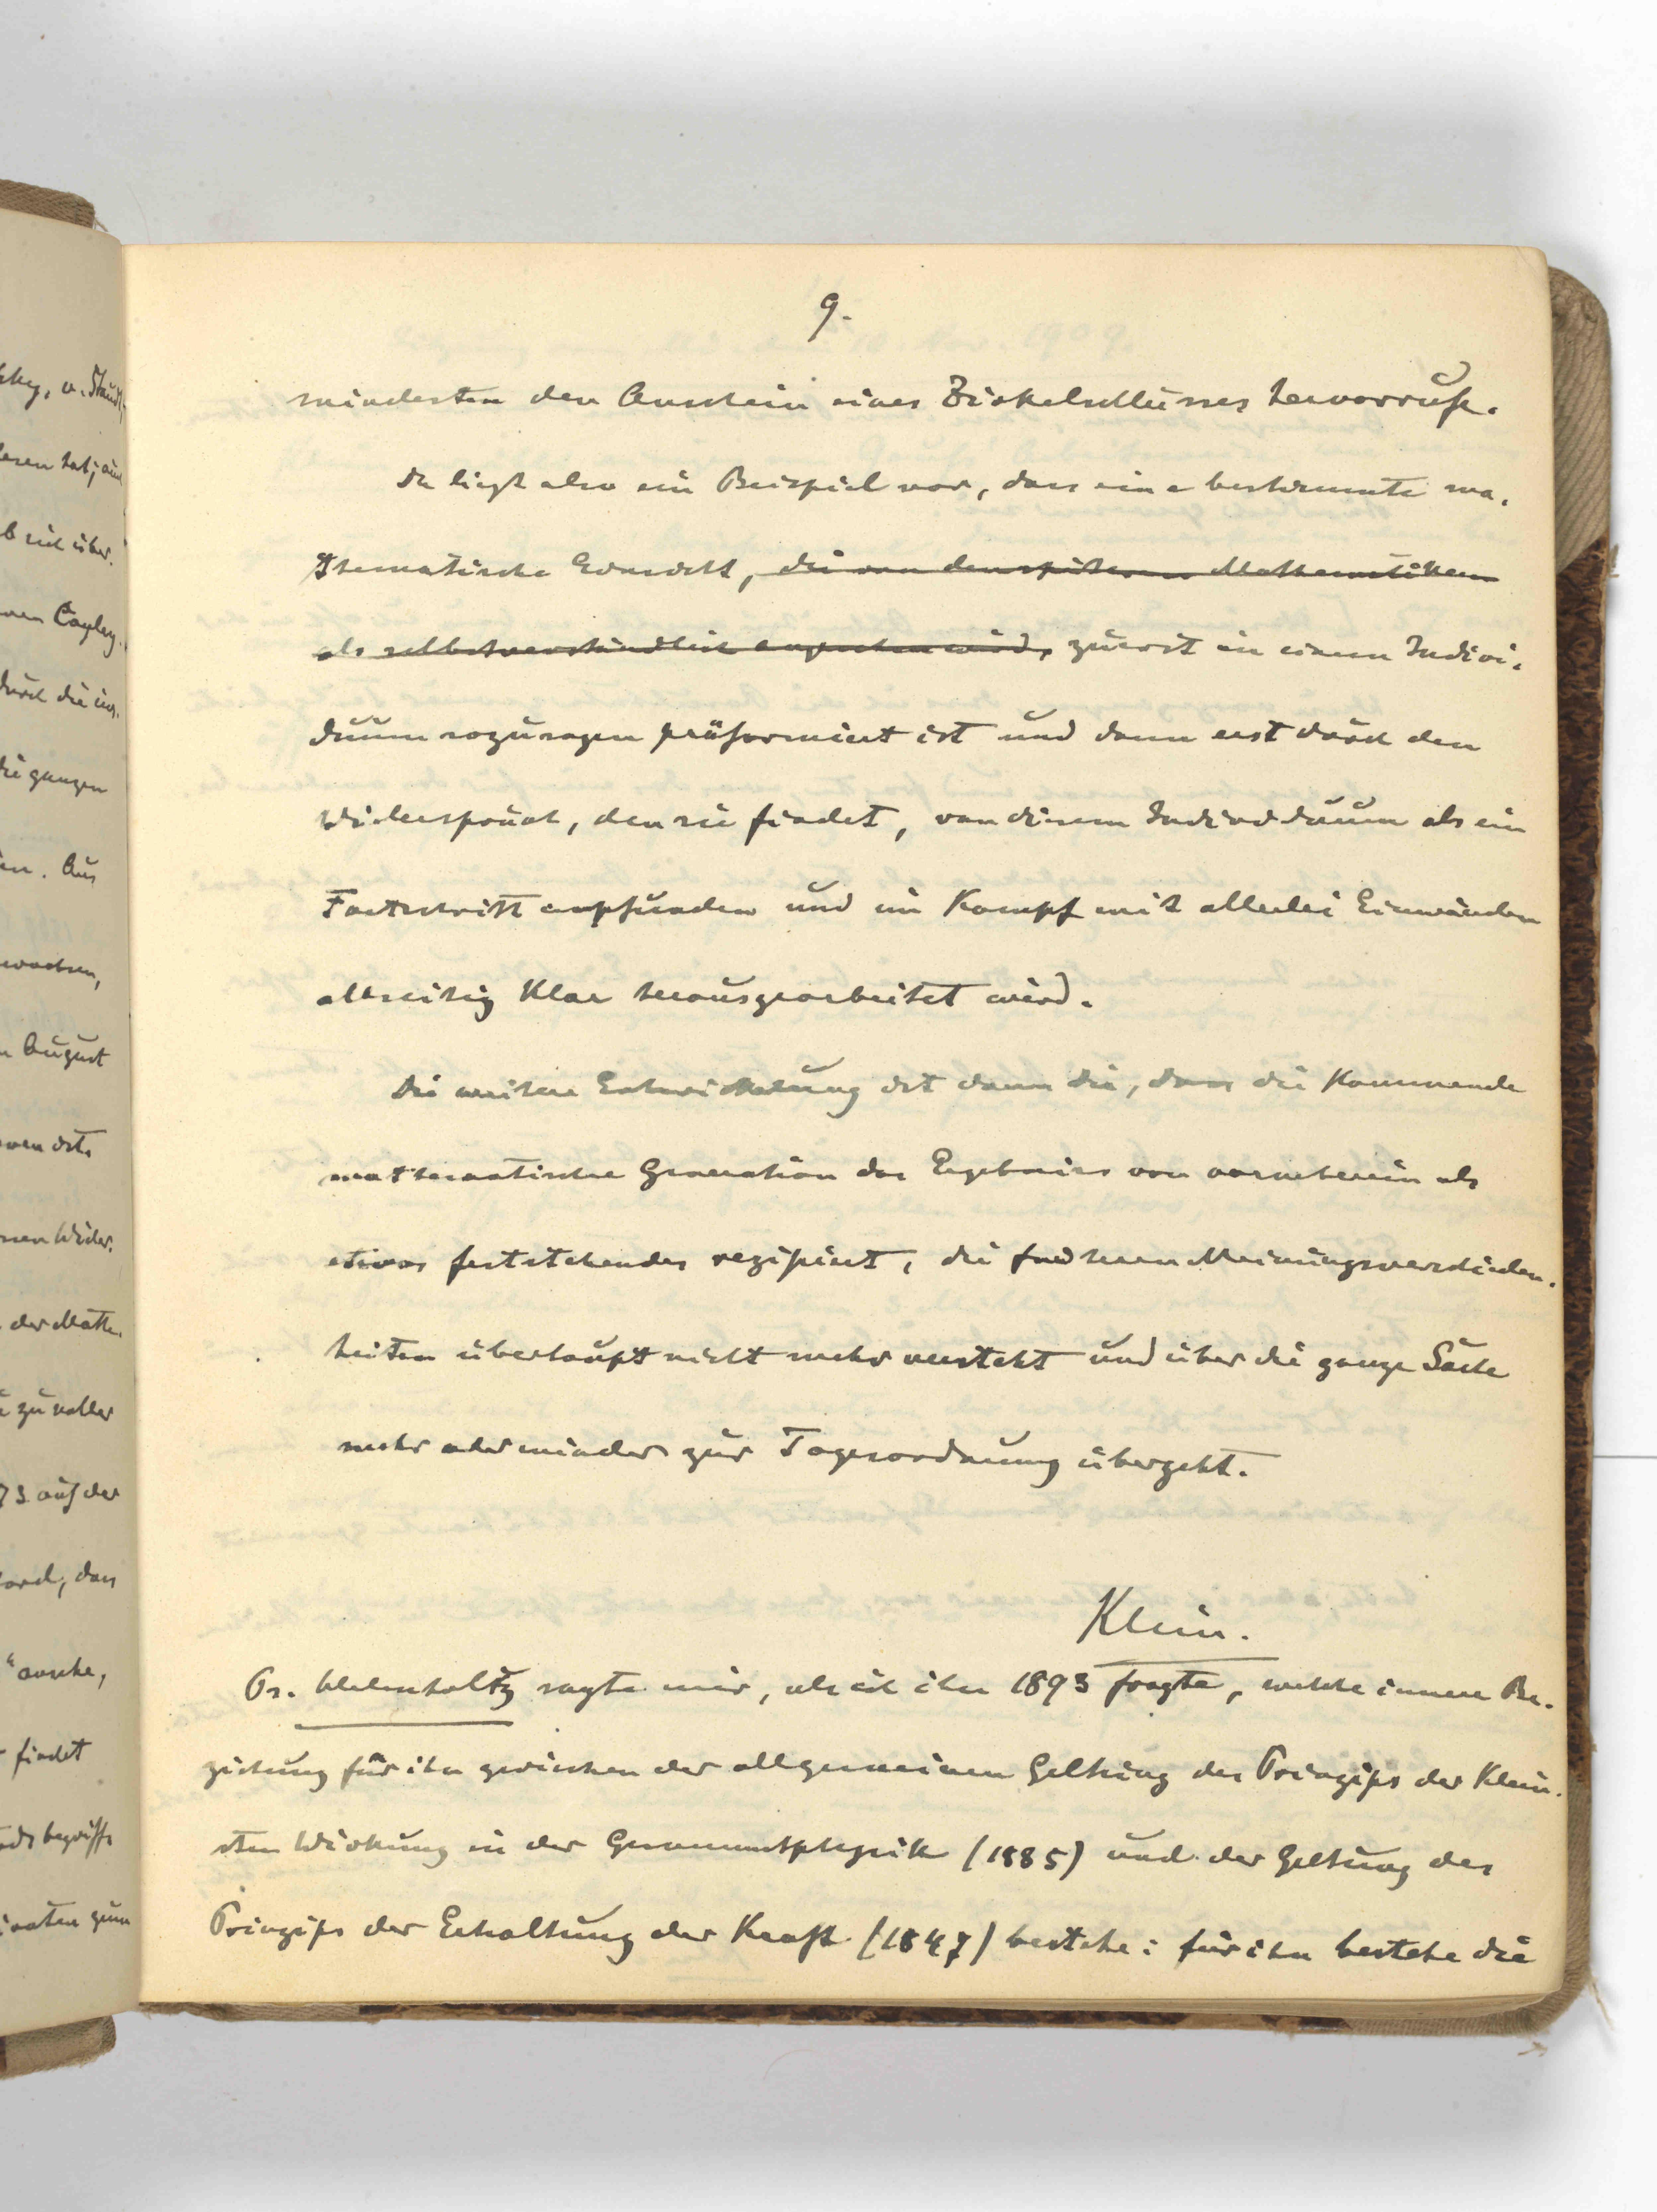 9.
mindesten den Anschein eines Zirkelschlusses hervorruft.
Da liegt also ein Beispiel vor, dass eine bestimmte ma-
thematische Einsicht, die von den späteren Mathematikern
als selbstverständlich angesehen wird, zuerst in einem Indivi-
duum sozusagen präformiert ist und dann erst durch den
Widerspruch, den sie findet, von diesem Individuum als ein
Fortschritt empfunden und im Kampf mit allerlei Einwänden
allseitig klar herausgearbeitet wird.
Die weitere Entwickelung ist dann die, dass die kommende
mathematische Generation das Ergebnis von vorneherein als
etwas feststehendes rezipiert, die früheren Meinungsverschieden-
heiten überhaupt nicht mehr versteht und über die ganze Sache
mehr oder minder zur Tagesordnung übergeht.
Klein.
Pr. Helmholtz sagte mir, als ich ihn 1893 fragte, welche innere Be-
ziehung für ihn zwischen der allgemeinen Geltung des Prinzips der klein-
sten Wirkung in der Gesammtphysik (1885) und der Geltung des
Prinzips der Erhaltung der Kraft (1847) bestehe: für ihn bestehe die
v. Staudt,
hat; auch
sich über-
Cayley
durch die
die ganzen
Aus
wachsen,
August
ist.
Wider-
der Mathe-
zu voller
73 auf der
dass
findet
begriffs
zum